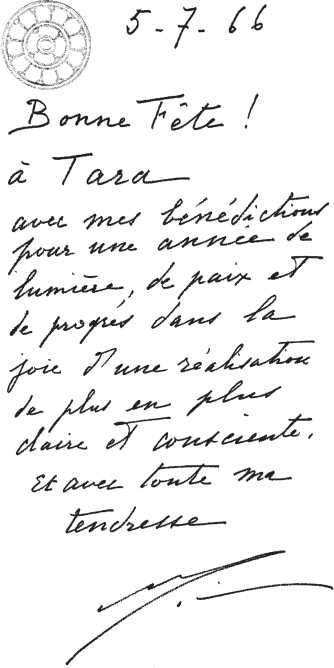 5-7-66
Bonne Fête !
à Tara
avec mes bénédictions
pour une année de
lumière, de paix et
de progrés dans la
joie d'une réalisation
de plus en plus
claire et consciente.
Et avec toute ma
tendresse